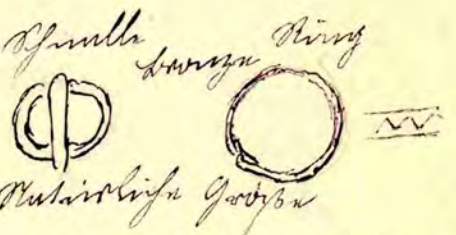 Schnalle
bronze Ring
Natürliche Größe